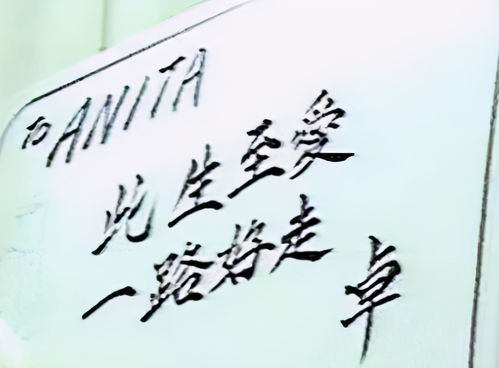 To ANITA
此生至爱
一路好走
卓